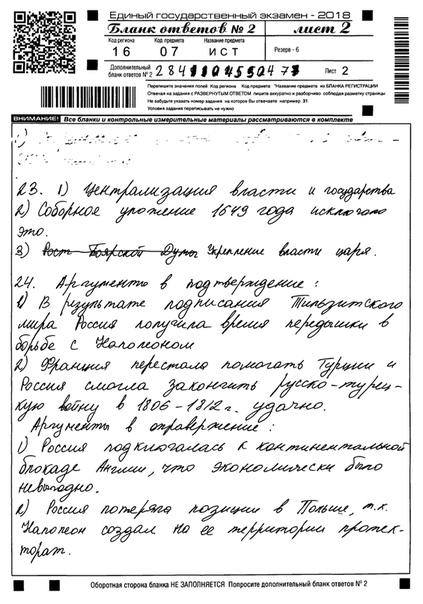 Единый государственный экзамен - 2018
Бланк ответов № 2
лист 2
Код региона Код предмета Название предмета
16 07 ИСТ
Резерв - 6
Дополнительный бланк ответов № 2
Лист 2
Перепишите значения полей "Код региона", "Код предмета", "Название предмета" из БЛАНКА РЕГИСТРАЦИИ
Отвечая на задания с РАЗВЕРНУТЫМ ОТВЕТОМ пишите аккуратно и разборчиво, соблюдая разметку страницы
Не забудьте указать номер задания, на которое Вы отвечаете, например 31
Условия задания переписывать не нужно
ВНИМАНИЕ! Все бланки и контрольные измерительные материалы рассматриваются в комплекте
23. 1) Централизация власти и государства
2) Соборное уложение 1649 года исключало
это.
3) Рост Боярской Думы Укрепление власти царя.
24. Аргументы в подтверждение:
1) В результате подписания Тильзитского
мира Россия получила время передышки в
борьбе с Наполеоном
2) Франция перестала помогать Турции и
Россия смогла закончить русско-турец-
кую войну в 1806-1812 г. удачно.
Аргументы в опровержение:
1) Россия подключалась к континентальной
блокаде Англии, что экономически было
невыгодно.
2) Россия потеряла позиции в Польше, т.к.
Наполеон создал на её территории протек-
торат.
Оборотная сторона бланка НЕ ЗАПОЛНЯЕТСЯ Попросите дополнительный бланк ответов № 2